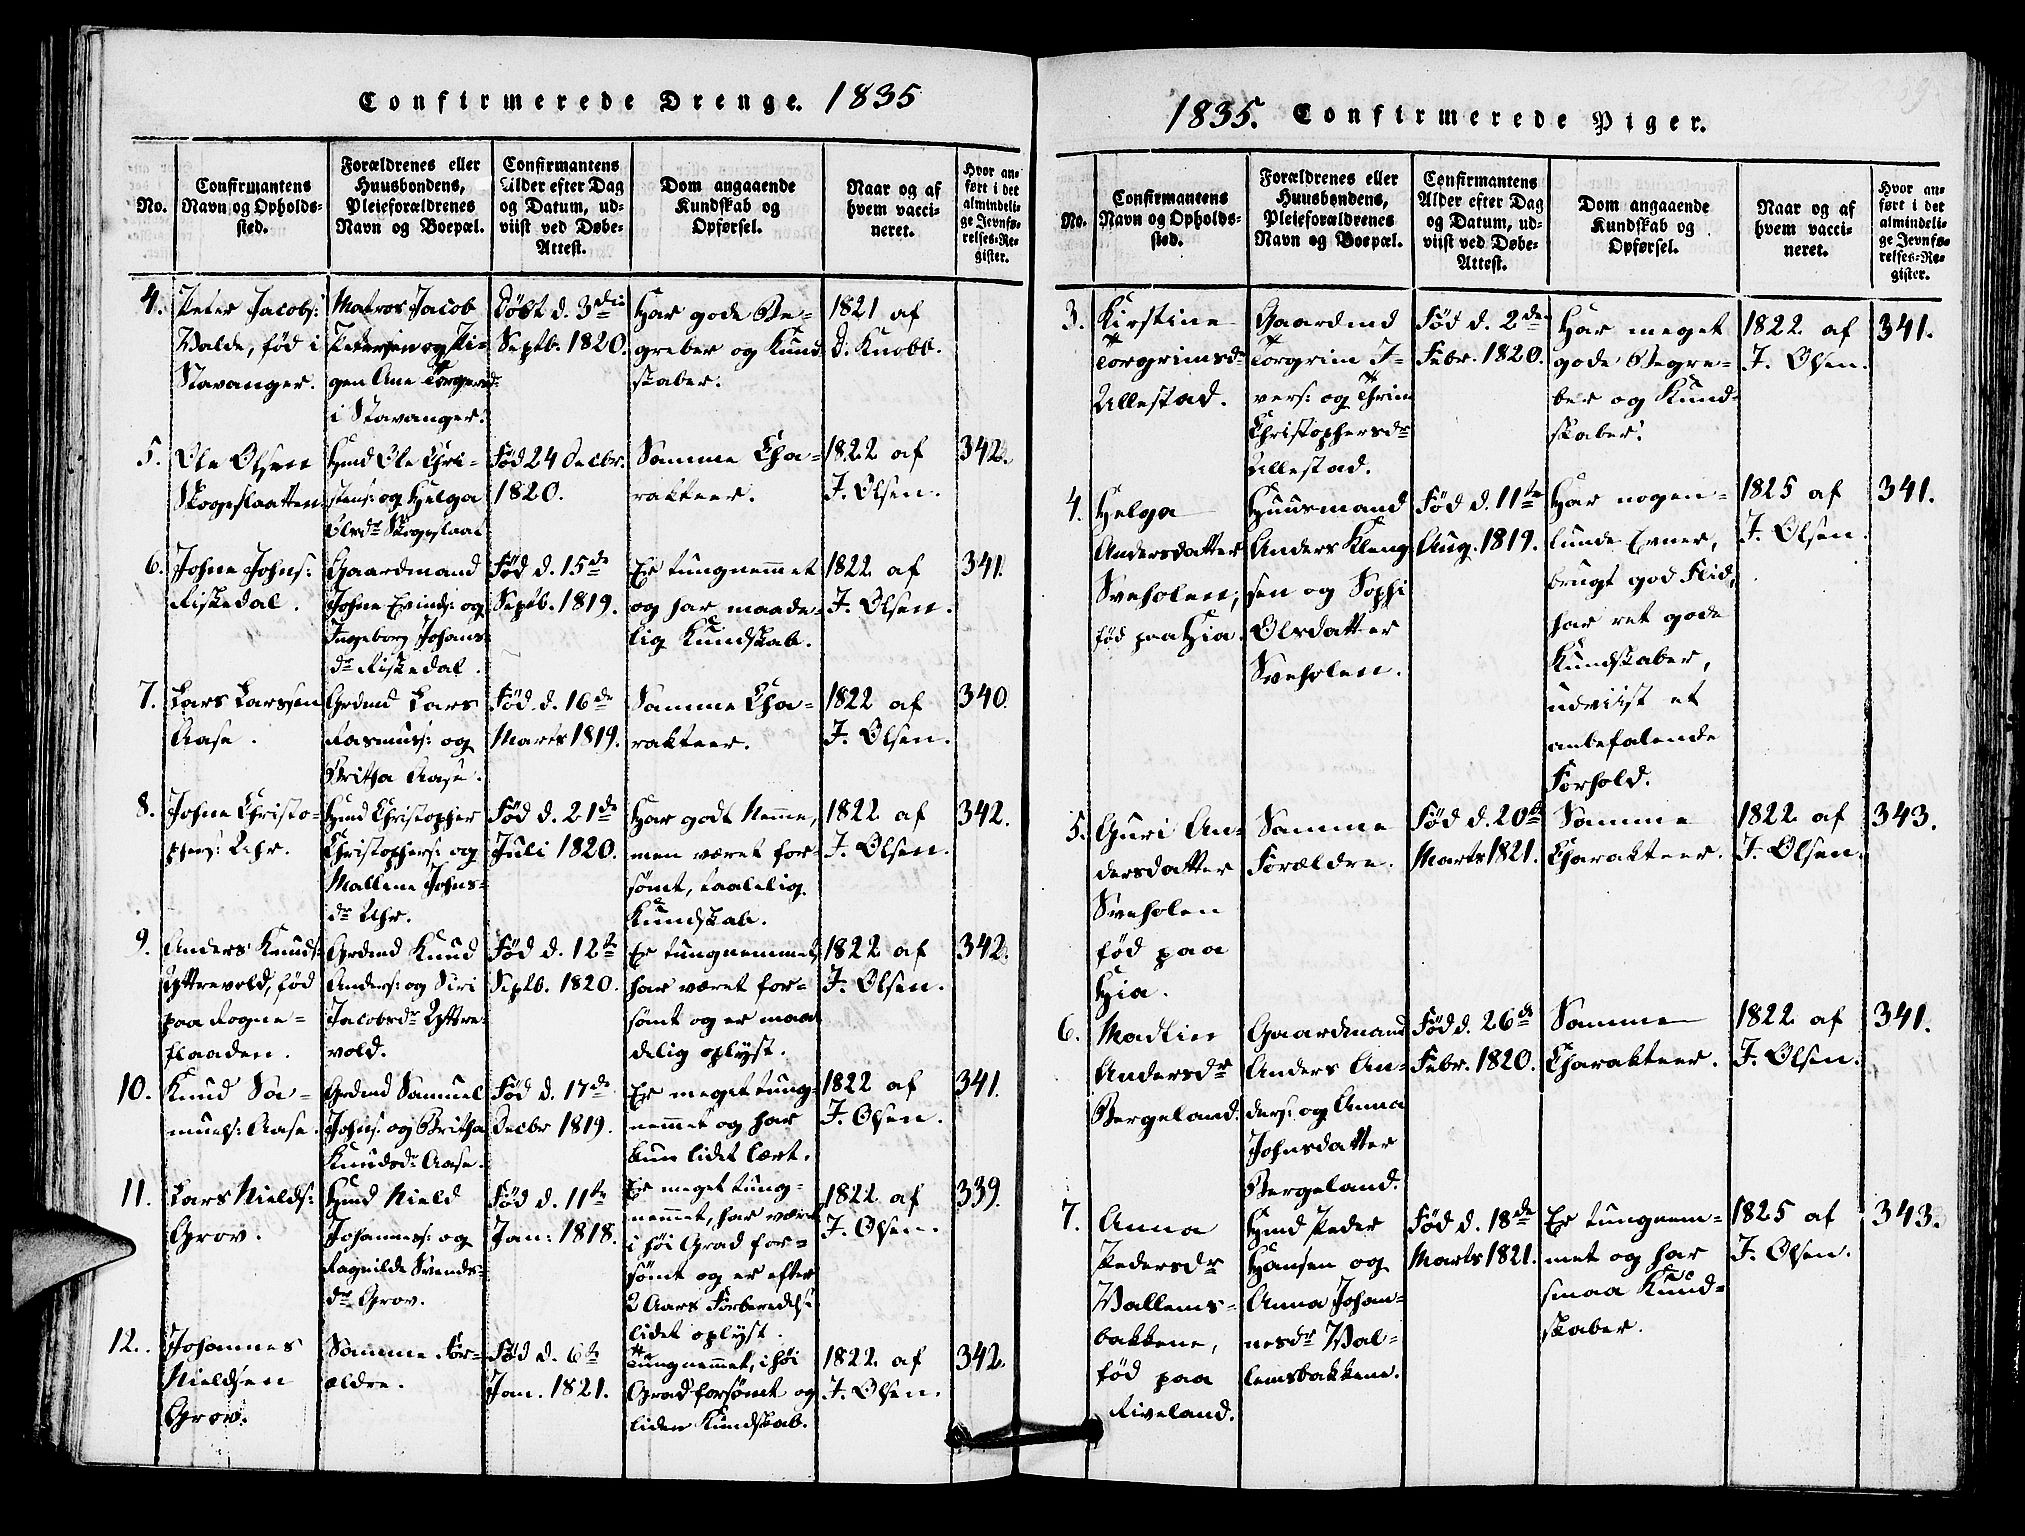 Confirmerede Drenge. 1835
No.
Confirmantens
Navn og Opholds-
sted.
Forældrenes eller
Huusbondens,
Pleieforældrenes
Navn og Boepæl.
Confirmantens
Alder efter Dag
og Datum, ud-
viist ved Døbe-
Attest.
Dom angaaende
Kundskab og
Opførsel.
Naar og af
hvem vacci-
neret.
Hvor an-
ført i det
almindeli-
ge Jevnfø-
relses-Re-
gister.
4.
Peter Jacobs:
Walde, fød i
Stavanger.
Matros Jacob
Petersen og Pi-
gen Ane Torgersd:
i Stavanger.
Døbt d. 3die
Septb. 1820.
Har gode Be-
greber og Kund
skaber.
1821 af
D. Knobb.
5.
Ole Olsen
Skogeslaatten
Hmd Ole Chri-
stens: og Helga
Olsdr Skogeslaat
Fød 24 Decbr.
1820.
Samme Cha-
rakteer.
1822 af
J. Olsen.
342.
6.
Johne Johns:
Riskedal.
Gaardmand
Johne Evinds: og
Ingeborg Johans-
dr Riskedal.
Fød d. 15de
Septb. 1819.
Er tungnemmet
og har maade-
lig Kundskab.
1822 af
J. Olsen.
341.
7.
Lars Larssen
Aase.
Grdmd Lars
Rasmus: og
Britha Aase.
Fød d. 16de
Marts 1819.
Samme Cha-
rakteer.
1822 af
J. Olsen.
340.
8.
Johne Christo-
phers: Uhr.
Hmd Christopher
Christophers: og
Mallene Johns-
dr Uhr.
Fød d. 21de
Juli 1820.
Har godt Nemme,
men været for-
sømt, taalelig
Kundskab.
1822 af
J. Olsen.
342.
9.
Anders Knuds:
Yttrevold, fød
paa Rogne-
flaaden.
Grdmd Knud
Anders: og Siri
Jacobsdr Yttre-
vold.
Fød d. 12te
Septb. 1820.
Er tungnemmet,
har været for-
sømt og er maa
delig oplyst.
1822 af
J. Olsen.
342.
10.
Knud Sa-
muels: Aase.
Grdmd Samuel
Johns: og Britha
Knudsdr Aase.
Fød d. 17de
Decbr 1819.
Er meget tung-
nemmet og har
kun lidet lært.
1822 af
J. Olsen.
341.
11.
Lars Nields:
Grov.
Hmd Nield
Johannes: og
Ragnilde Svends-
dr Grov.
Fød d. 11te
Jan: 1818.
Er meget tung-
nemmet, har været
i høi Grad for-
sømt og er efter
2 Aars Forberedelse
lidet oplyst.
1822 af
J. Olsen.
339.
12.
Johannes
Nieldsen
Grov.
Samme For-
ældre.
Fød d. 6te
Jan. 1821.
Tungnemmet, i høi
Grad forsømt og
liden Kundskab.
1822 af
J. Olsen.
342.
1835. Confirmerede Piger.
No.
Confirmantens
Navn og Opholds-
sted.
Forældrenes eller
Huusbondens,
Pleieforældrenes
Navn og Boepæl.
Confirmantens
Alder efter Dag
og Datum, ud-
viist ved Døbe-
Attest.
Dom angaaende
Kundskab og
Opførsel.
Naar og af
hvem vacci-
neret.
Hvor an-
ført i det
almindeli-
ge Jevnfø-
relses-Re-
gister.
3.
Kirstine
Torgrimsdr
Ullestad.
Gaardmd
Torgrim I-
vers: og Thrine
Christophersdr
Ullestad.
Fød d. 2den
Febr. 1820.
Har meget
gode Begre-
ber og Kund-
skaber.
1822 af
J. Olsen.
341.
4.
Helga
Andersdatter
Sveholen,
fød paa Hia.
Huusmand
Anders Kleng
sen og Sophi
Olsdatter
Sveholen.
Fød d. 11te
Aug. 1819.
Har nogen-
lunde Evner,
brugt god Flid,
har ret gode
Kundskaber,
udviist et
anbefalende
Forhold.
1825 af
J. Olsen.
341.
5.
Guri An-
dersdatter
Sveholen
fød paa
Hia.
Samme
Forældre.
Fød d. 20de
Marts 1821.
Samme
Charakteer.
1822 af
J. Olsen.
343.
6.
Madlin
Andersdr
Bergeland.
Gaardmand
Anders An-
ders: og Anna
Johnsdatter
Bergeland.
Fød d. 26de
Febr. 1820.
Samme
Charakteer.
1822 af
J. Olsen.
341.
7.
Anna
Pedersdr
Wallems-
bakkene,
fød paa
Riveland.
Hmd Peder
Hansen og
Anna Johan-
nesdr Wal-
lemsbakkene.
Fød d. 18de
Marts 1821.
Er tungnem-
met og har
smaa Kund-
skaber.
1825 af
J. Olsen.
343.